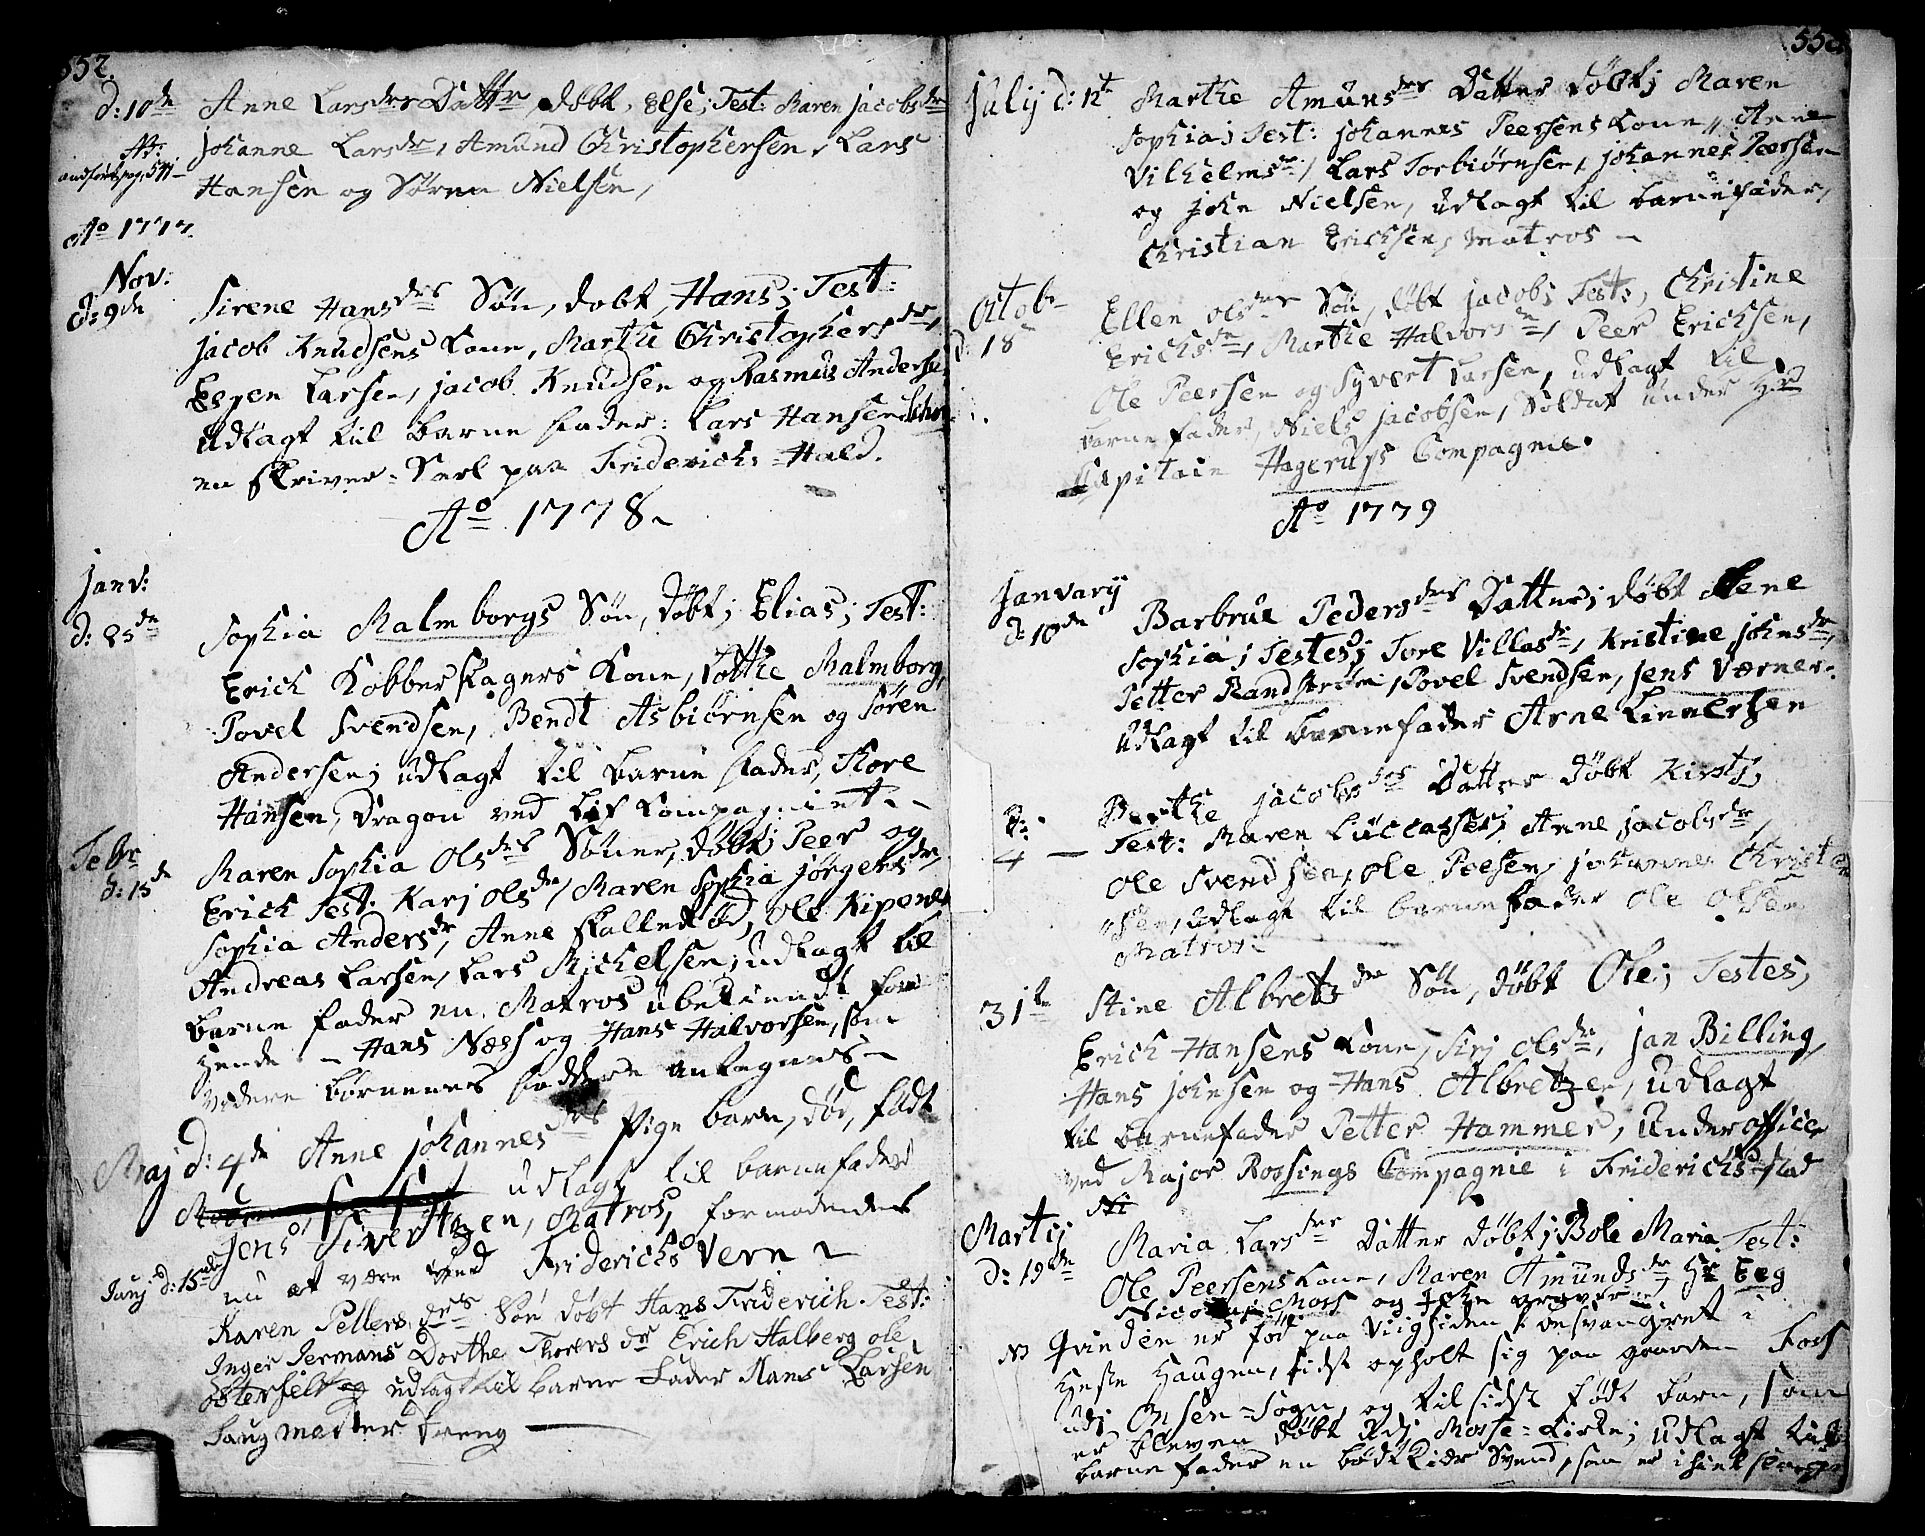 552.
d: 10de Anne Larsdrs Datter, døbt, Else; Test: Maren Jacobsdr
NB: Johanne Larsdr, Amund Christophersen, Lars
anført pag. 541 – Hansen og Søren Nielsen,
Ao 1777.
Nov:
d: 9de Sirene Hansdrs Søn, døbt, Hans; Test:
Jacob Knudsens Kone, Marthe Christophersdr,
Espen Larsen, Jacob Knudsen og Rasmus Andersen
Udlagt til barne fader: Lars Hansen
en skriver-Karl paa Friderichs-Hald.
Ao 1778.
Janv:
d: 25de Sophia Malmborgs Søn, døbt; Elias; Test:
Erich Kobberslagers Kone, Lotthe Malmborg,
Povel Svendsen, Bendt Asbiørnsen og Søren
Andersen; udlagt til barne fader, Thore
Hansen, Dragon ved Lif Compagniet. –
Febr
d: 15de Maren Sophia Olsdrs Sønner, døbt; Peer og
Erich Test: Karj Olsdr, Maren Sophia Jørgensdr,
Sophia Andersdr, Anne Skallerød, Ole Kipenes
Andreas Larsen, Lars Michelsen; udlagt til
barne fader en Matros ubekiendt for
hende – Hans Næss og Hans Halvorsen, som
vedere børnenes faddere antegnes –
Maj d: 4de Anne Johannesdrs Pige barn, dør, født
udlagt til barnefader
Jens Sivertzen, Matros, formodendes
nu at være ved Friderichs Vern
Junj d: 15de
Karen Pettersdrs Søn døbt Hans Friderich. Test:
Inger Jermans Dorthe Thorersdr Erich Halberg ole
østerfelt og udlagt til barne Fader Hans Larsen
Saugmester dreng
July d: 12te Marthe Amunsdrs Datter døbt; Maren
Sophia; Test: Johannes Peersens Kone, Anne
Vilhelmsdr, Lars Torbiørnsen, Johannes Peersen
og John Nielsen, udlagt til barnefader,
Christian Erichsen, Matros –
Octobr
d: 18 Ellen Olsdrs Søn, døbt Jacob; Test:, Christine
Erichsdr, Marthe Halvorsdr, Peer Erichsen,
Ole Peersen og Syvert Larsen, udlagt til
barne fader, Niels Jacobsen, Soldat under Hr
Capitain Hagerups Compagnie.
Ao 1779
Janvary
d: 10de Barbrue Pedersdrs Datter; døbt Lene
Sophia; Testes; Tore Villasdr, Kristine Johnsdr,
Petter Randstrøm, Povel Svendsen, Jens Værner.
Udlagt til barnefader Arne Linnertzen
d:
4 – Berthe Jacobsdrs Datter døbt Kirstj;
Test: Maren Luccasses, Anne Jacobsdr,
Ole Svendsen, Ole Poesen, Johannes Christ
udlagt til barnefader Ole Olsen
Matros.
31te Stine Albretzdr Søn, døbt Ole; Testes,
Erich Hansens Kone, Sirj Olsdr, Jan Billing,
Hans Johnsen og Hans Albretzen, udlagt
til barnefader Petter Hammer, Underofficer
ved Major Rossings Compagnie i Friderichstad
Martij
d: 19de Maria Larsdrs Datter døbt; Bole Maria. Test:
Ole Peersens Kone, Maren Amundsdr, Hr Eeg
Nicolaj Moss og John
NB Qvinden er fød paa Viigsiden, besvangret i
Heste Haugen, sidst opholt sig paa gaarden Foss
udj Onsøe-Sogn, og til sidst født barn, som
er bleven døbt udj Mosse-Kirke; udlagt til
barnefader en bødtkier Svend, som er